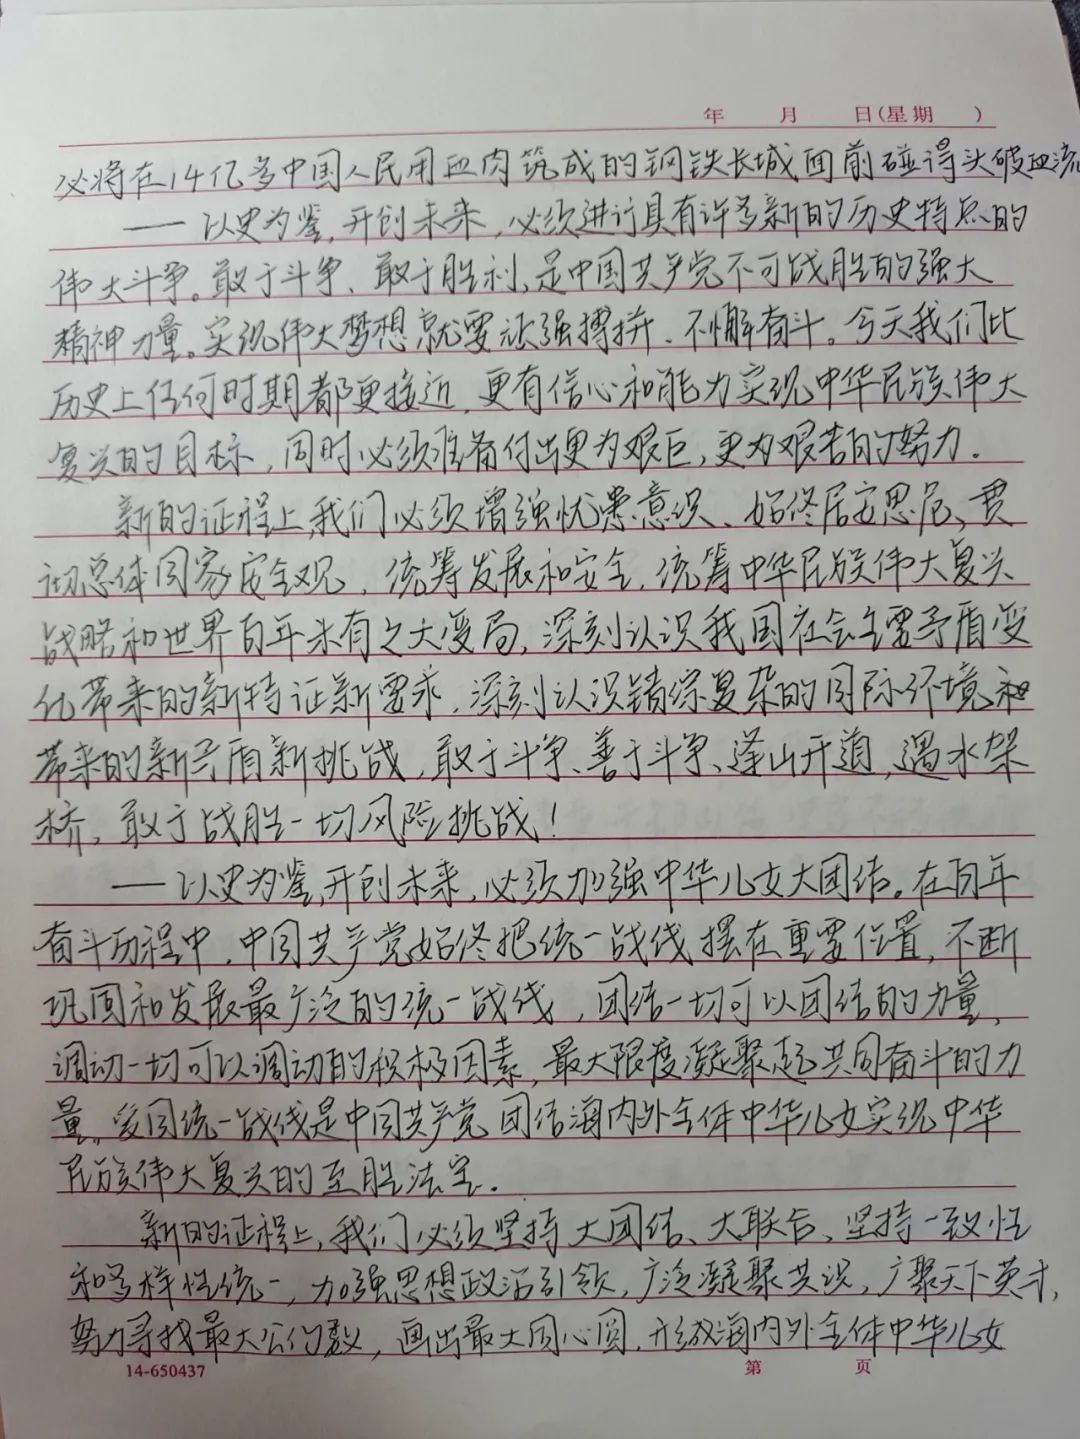 年 月 日(星期 )
必将在14亿多中国人民用血肉筑成的钢铁长城面前碰得头破血流
——以史为鉴,开创未来,必须进行具有许多新的历史特点的
伟大斗争。敢于斗争、敢于胜利,是中国共产党不可战胜的强大
精神力量。实现伟大梦想就要顽强搏拼、不懈奋斗。今天我们比
历史上任何时期都更接近、更有信心和能力实现中华民族伟大
复兴的目标,同时必须准备付出更为艰巨,更为艰苦的努力.
新的证程上,我们必须增强忧患意识、始终居安思危、贯
彻总体国家安全观,统筹发展和安全,统筹中华民族伟大复兴
战略和世界百年未有之大变局,深刻认识我国社会主要矛盾变
化带来的新特证新要求,深刻认识错综复杂的国际环境和
带来的新矛盾新挑战,敢于斗争、善于斗争、逢山开道,遇水架
桥,敢于战胜一切风险挑战!
——以史为鉴,开创未来,必须加强中华儿女大团结。在百年
奋斗历程中,中国共产党始终把统一战线摆在重要位置,不断
巩固和发展最广泛的统一战线,团结一切可以团结的力量,
调动一切可以调动的积极因素,最大限度凝聚起共同奋斗的力
量。爱国统一战线是中国共产党团结海内外全体中华儿女实现中华
民族伟大复兴的至胜法宝.
新的证程上,我们必须坚持大团结、大联合、坚持一致性
和多样性统一,加强思想政治引领,广泛凝聚共识,广聚天下英才,
努力寻找最大公约数,画出最大同心圆,形成海内外全体中华儿女
14-650437 第 页